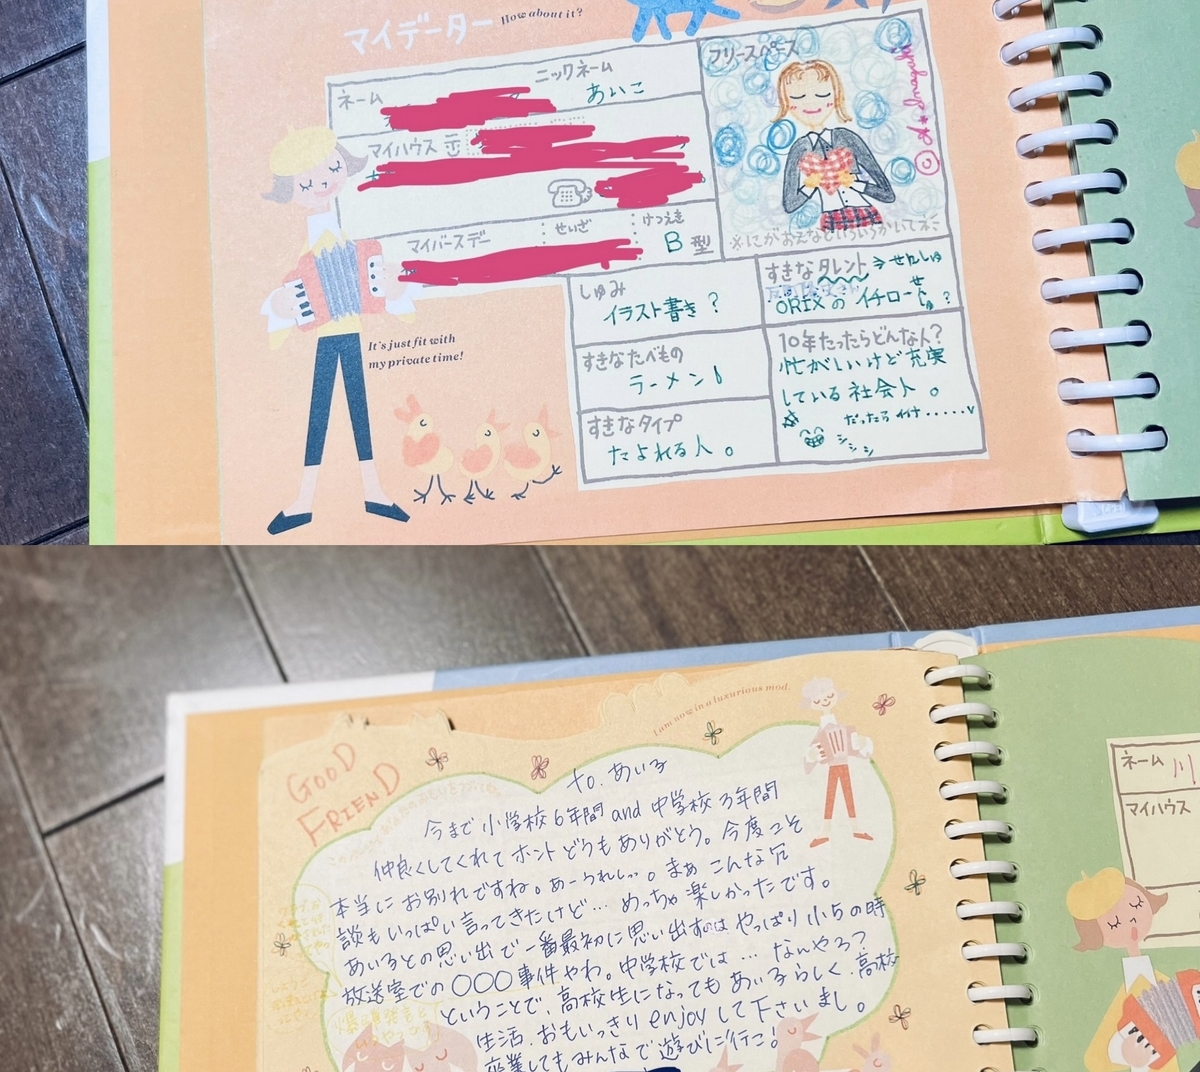 マイデーター
How about it?
ネーム
ニックネーム
あいこ
マイハウス 〒
マイバースデー
せいざ
けつえき
B型
フリースペース
※にがおえなどいろいろかいてネ
しゅみ
イラスト書き?
すきなタレント ⇒ せんしゅ
ORIXの イチロー せ
?
すきなたべもの
ラーメン♪
すきなタイプ
たよれる人。
10年たったらどんな人?
忙がしいけど充実
している社会人。
だったらイイナ・・・・・
It's just fit with
my private time!
I am now in a luxurious mod.
GOOD
FRIEND
to. あいろ
今まで 小学校6年間 and 中学校3年間
仲良くしてくれて ホント どうも ありがとう。今度こそ
本当に お別れですね。あーうれし…。まぁ こんな冗
談も いっぱい 言ってきたけど… めっちゃ 楽しかったです。
あいろとの思い出で一番最初に思い出すのは やっぱり 小5の時
放送室での 〇〇〇事件やわ。中学校では … なんやろ?
ということで、高校生になっても あいろらしく、高校
生活、おもいっきり enjoyして下さいまし。
卒業しても みんなで 遊びに行こ!
ネーム 川
マイハウス